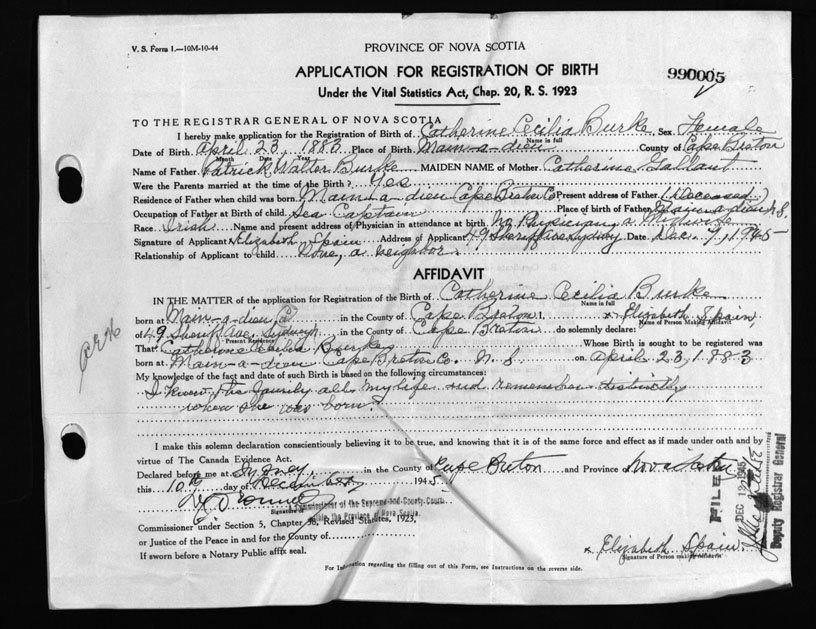 V. S. Form 1.—10M-10-44
PROVINCE OF NOVA SCOTIA
APPLICATION FOR REGISTRATION OF BIRTH
990005
Under the Vital Statistics Act, Chap. 20, R. S. 1923
TO THE REGISTRAR GENERAL OF NOVA SCOTIA
I hereby make application for the Registration of Birth of Catherine Cecilia Burke, Sex Female
Name in full
Date of Birth April 23, 1883 Place of Birth Main-a-dieu County of Cape Breton
Month Date Year
Name of Father Patrick Walter Burke MAIDEN NAME of Mother Catherine Gallant
Were the Parents married at the time of the Birth? Yes
Residence of Father when child was born Main-a-dieu Cape Breton Co Present address of Father (Deceased)
Occupation of Father at Birth of child Sea Captain Place of birth of Father Main-a-dieu N.S.
Race Irish Name and present address of Physician in attendance at birth No Physician, a Midwife
Signature of Applicant Elizabeth Spain Address of Applicant 49 Sheriff Ave Sydney Date Dec. 7, 1945
Relationship of Applicant to child None, a neighbor
AFFIDAVIT
IN THE MATTER of the application for Registration of the Birth of Catherine Cecilia Burke
Name in full
born at Main-a-dieu C.B. in the County of Cape Breton I, x Elizabeth Spain,
Name of Person Making Affidavit
of 49 Sheriff Ave, Sydney in the County of Cape Breton do solemnly declare:
Present Residence
That Catherine Cecilia Burke Whose Birth is sought to be registered was
born at Main-a-dieu Cape Breton Co. N. S. on April 23, 1883
My knowledge of the fact and date of such Birth is based on the following circumstances:
I know the family all my life and remember distinctly
when she was born.
I make this solemn declaration conscientiously believing it to be true, and knowing that it is of the same force and effect as if made under oath and by
virtue of The Canada Evidence Act.
Declared before me at Sydney, in the County of Cape Breton and Province Nova Scotia
this 10th day of December 1945.
Signature of
A Commissioner of the Supreme and County Courts
within the Province of Nova Scotia
Commissioner under Section 5, Chapter 38, Revised Statutes, 1923,
or Justice of the Peace in and for the County of
If sworn before a Notary Public affix seal.
x Elizabeth Spain.
Signature of Person making Affidavit
For Information regarding the filling out of this Form, see Instructions on the reverse side.
FILED
DEC 12 1945
Deputy Registrar General